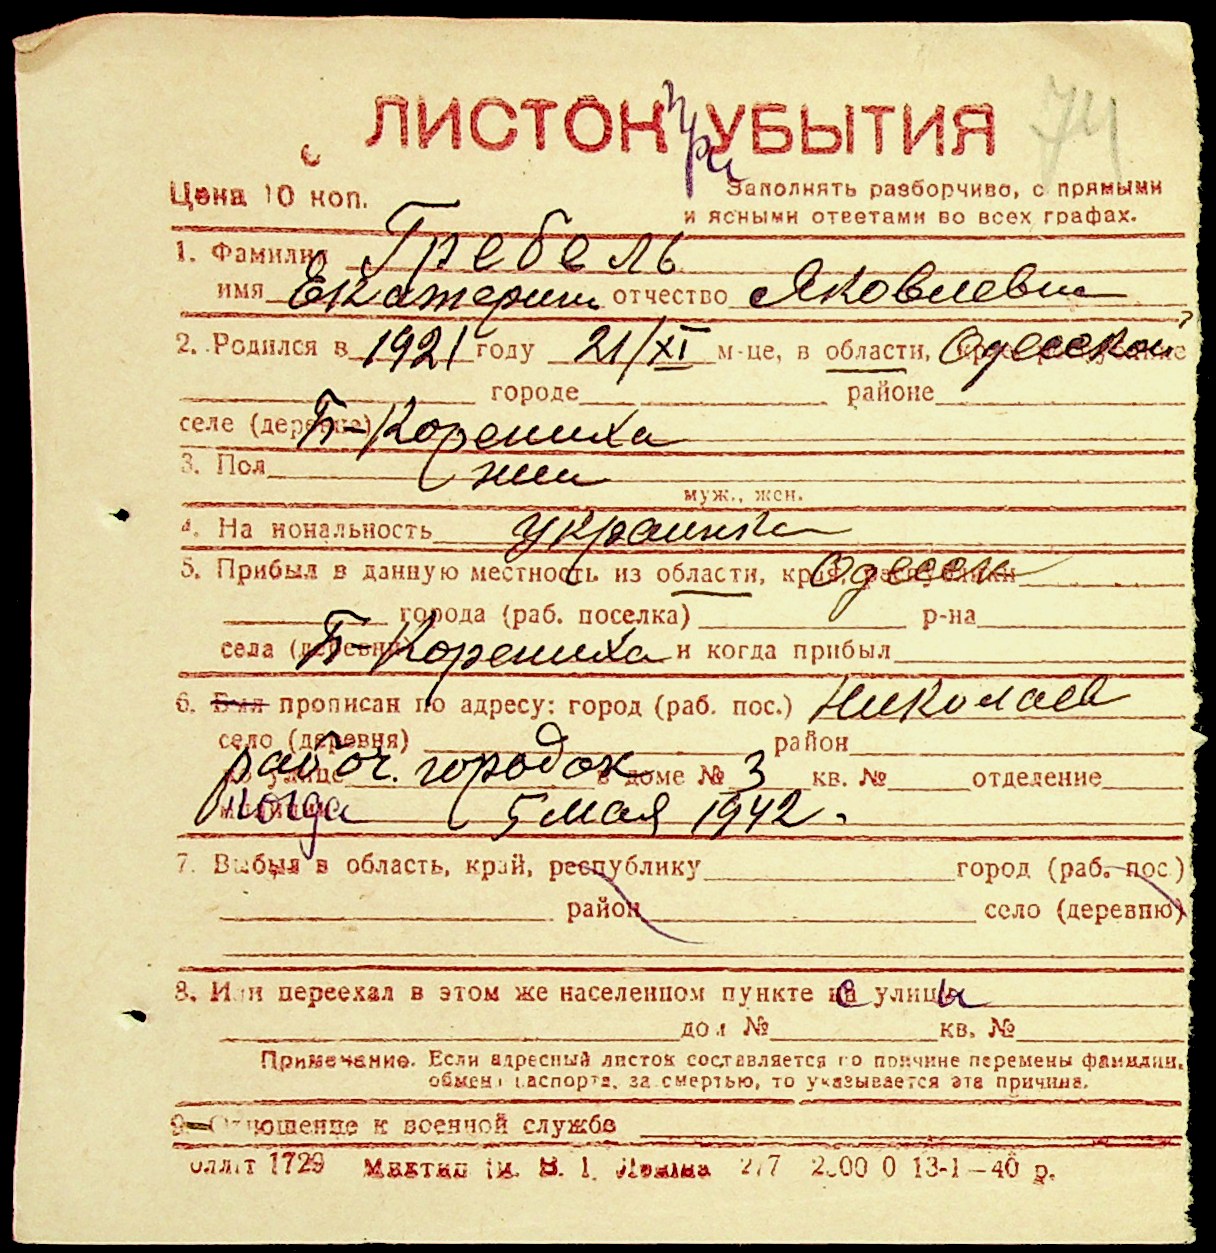 ЛИСТОК при УБЫТИЯ 74
Цена 10 коп. Заполнять разборчиво, с прямыми
и ясными ответами во всех графах.
1. Фамилия Гребель
имя Екатерина отчество Яковлевна
2. Родился в 1921 году 21/XI м-це, в области, Одесской
городе районе
селе (деревне) Б-Корениха
3. Пол жен
муж., жен.
4. Национальность украинка
5. Прибыл в данную местность из области, края, республики Одесск
города (раб. поселка) р-на
села (деревни) Б-Корениха и когда прибыл
6. Был прописан по адресу: город (раб. пос.) Николаев
село (деревня) район
по улице рабоч. городок в доме № 3 кв. № отделение
милиции когда 5 мая 1942.
7. Выбыл в область, край, республику город (раб. пос.)
район село (деревню)
8. Или переехал в этом же населенном пункте с улицы
дом № кв. №
Примечание. Если адресный листок составляется по причине перемены фамилии,
обмена паспорта, за смертью, то указывается эта причина.
9. Отношение к военной службе
1729 им. В. І. Леніна 277 13-1—40 р.